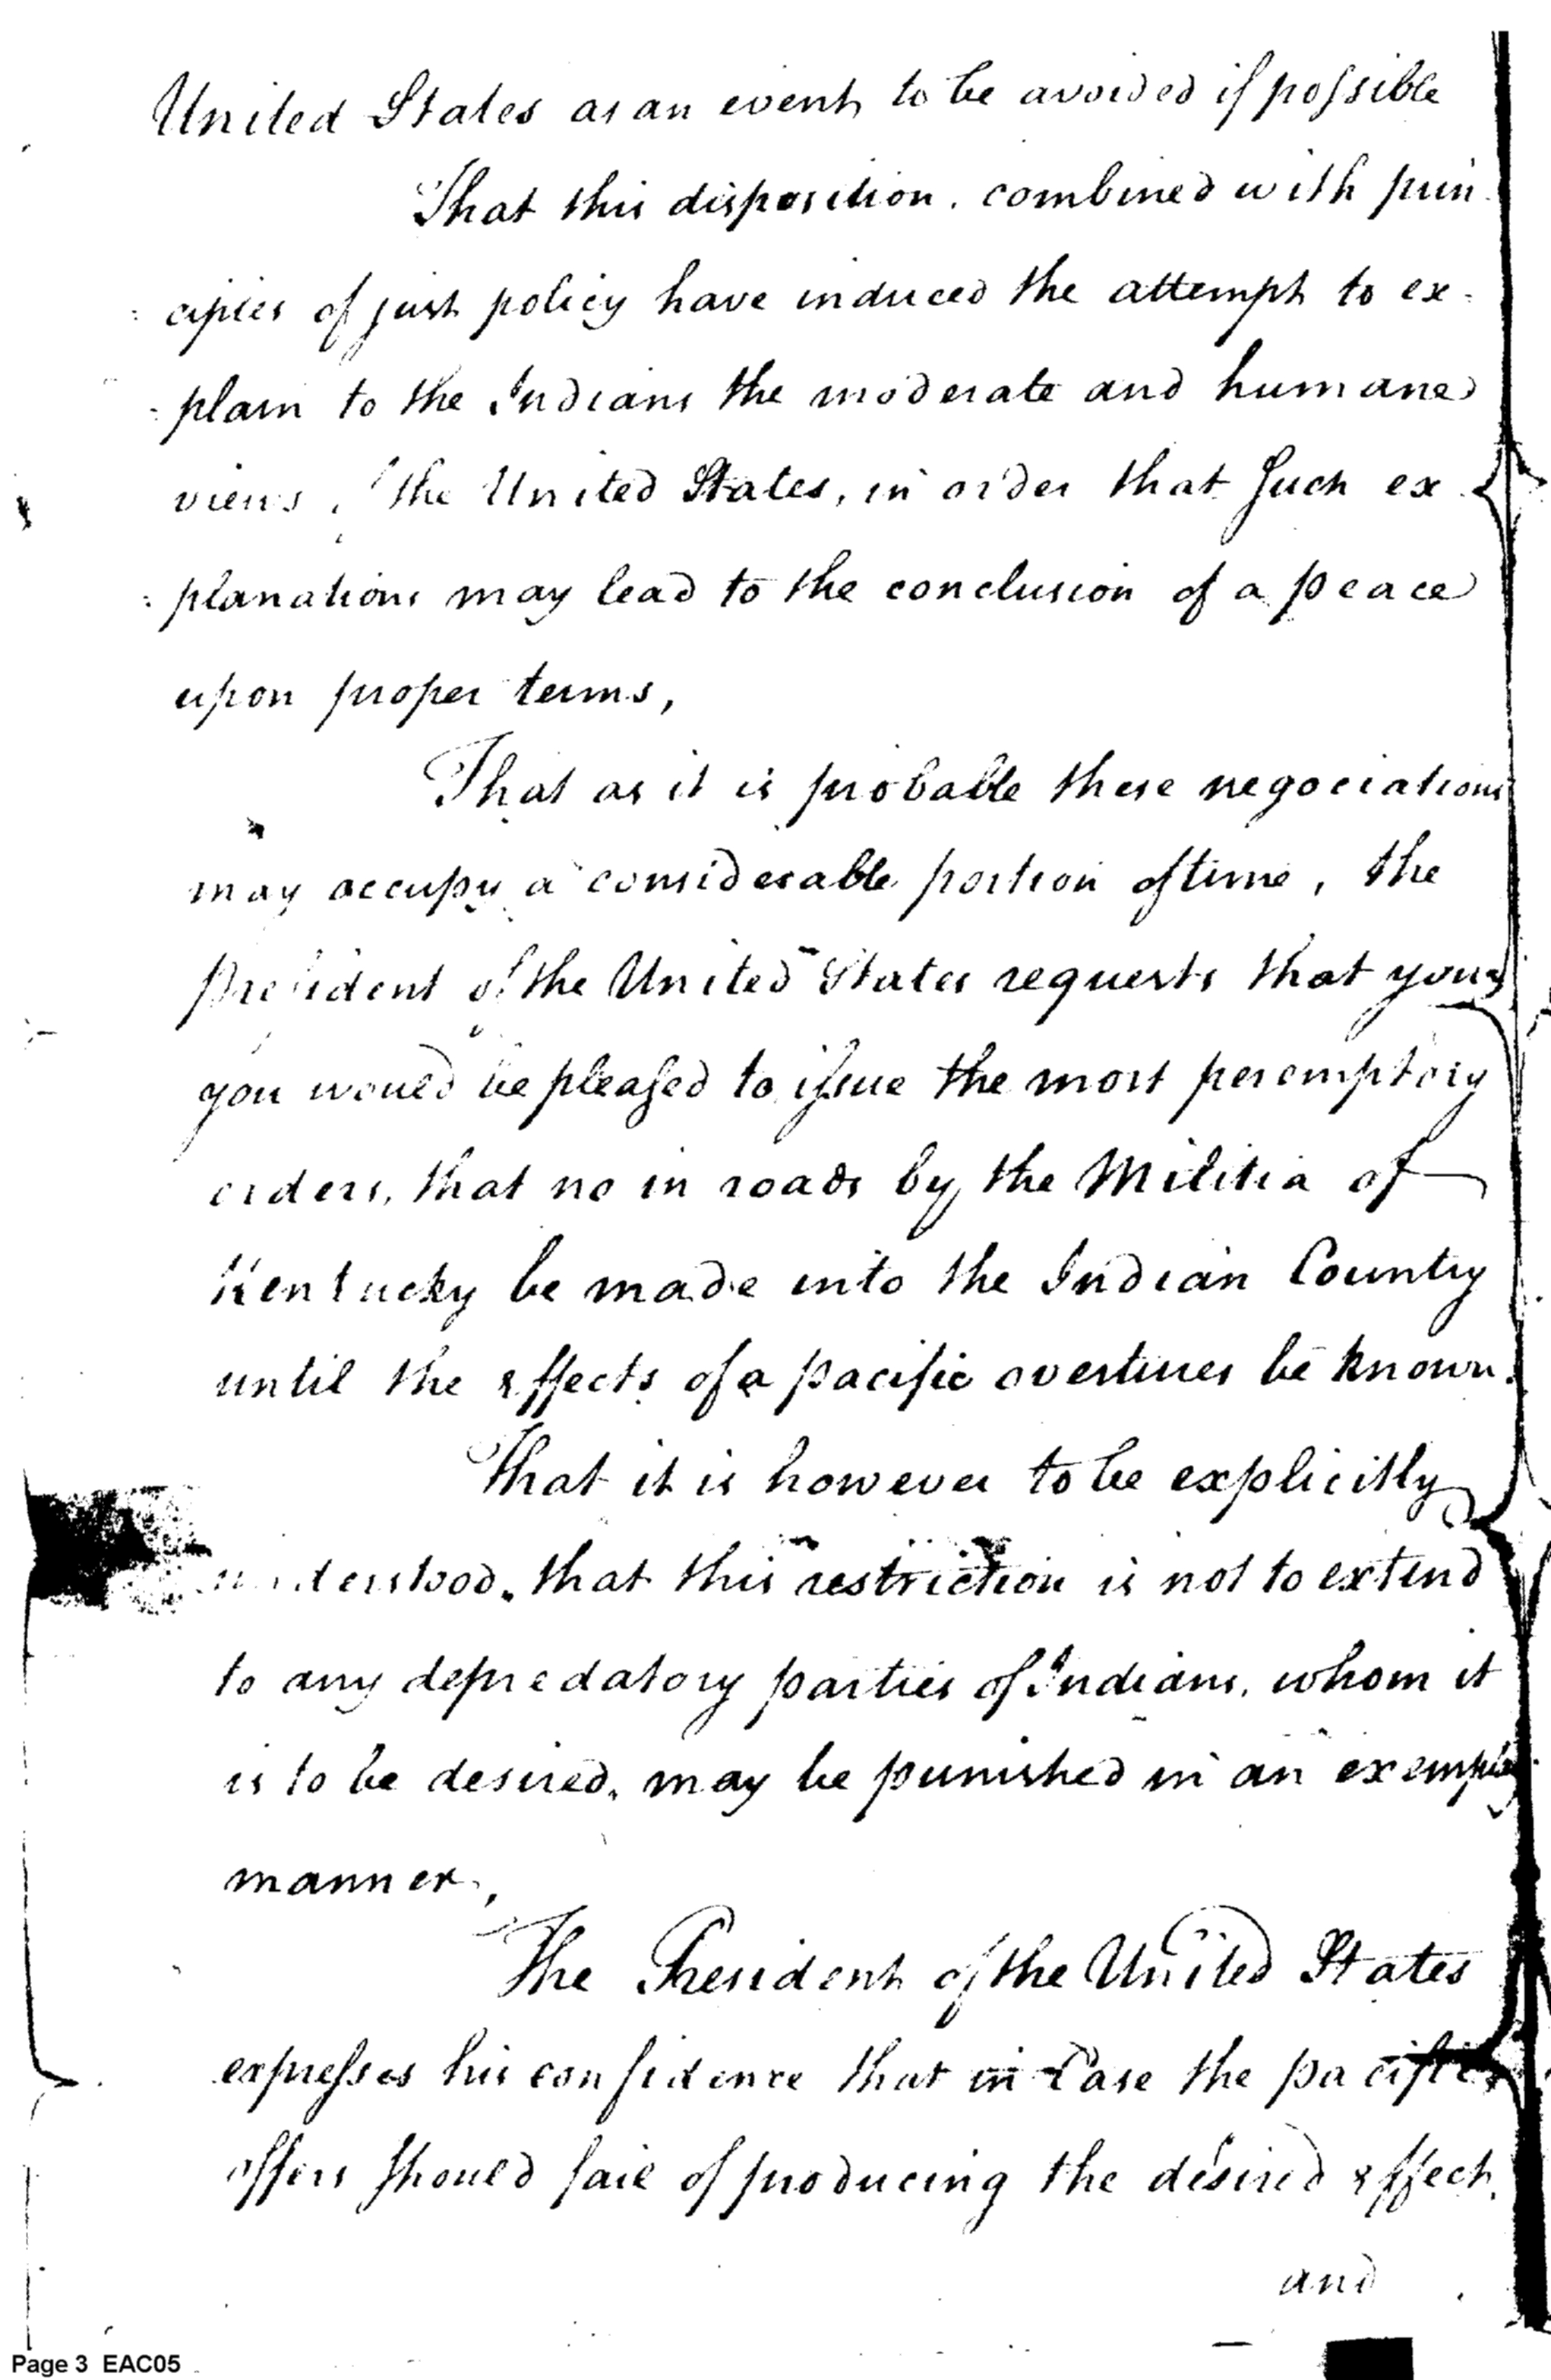 United States as an event to be avoided if possible
That this disposition, combined with prin
: ciples of just policy have induced the attempt to ex :
: plain to the Indians the moderate and humane
views of the United States, in order that such ex
: planations may lead to the conclusion of a peace
upon proper terms,
That as it is probable these negociations
may occupy a considerable portion of time, the
President of the United States requests that you
you would be pleased to issue the most peremptory
orders, that no in roads by the Militia of
Kentucky be made into the Indian Country
until the effects of a pacific overtures be known.
That it is however to be explicitly
understood, that this restriction is not to extend
to any depredatory parties of Indians, whom it
is to be desired, may be punished in an exemplary
manner,
The President of the United States
expresses his confidence that in Case the pacific
offers should fail of producing the desired effect,
and
Page 3 EAC05